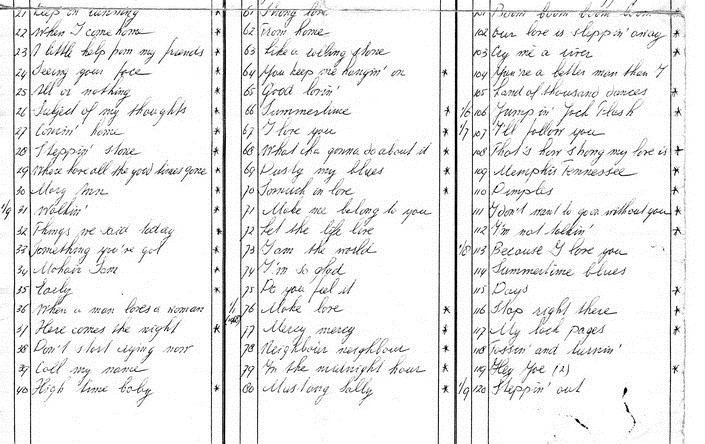 21 Keep on running
22 When I come home *
23 A little help from my friends *
24 Seeing your face *
25 All or nothing *
26 Subject of my thoughts *
27 Comin' home *
28 Steppin' stone *
29 Where have all the good times gone *
30 Mary Ann *
1/9 31 Walkin' *
32 Things we said today *
33 Something you've got *
34 Mohair Sam *
35 Early *
36 When a man loves a woman
37 Here comes the night *
38 Don't start crying now
39 Call my name
40 High time baby *
61 Strong love
62 From home
63 Like a rolling stone
64 You keep me hangin' on *
65 Good lovin'
66 Summertime *
67 I love you *
68 What cha gonna do about it *
69 Dusty my blues *
70 So much in love *
71 Make me belong to you
72 Let the life live
73 I am the world
74 I'm so glad
75 Do you feel it
1/1 76 Make love *
77 Mercy mercy *
78 Neighbour neighbour *
79 In the midnight hour *
80 Mustang Sally *
101 Boom boom boom boom
102 Our love is slippin' away *
103 Cry me a river *
104 You're a better man than I
105 Land of thousand dances *
1/6 106 Jumpin' Jack Flash *
1/7 107 I'll follow you
108 That's how strong my love is *
109 Memphis Tennessee *
110 Dimples *
111 I don't want to go on without you *
112 I'm not talkin' *
1/8 113 Because I love you
114 Summertime blues
115 Days *
116 Stop right there *
117 My back pages *
118 Tossin' and turnin'
119 Hey Joe (2) *
1/9 120 Steppin' out